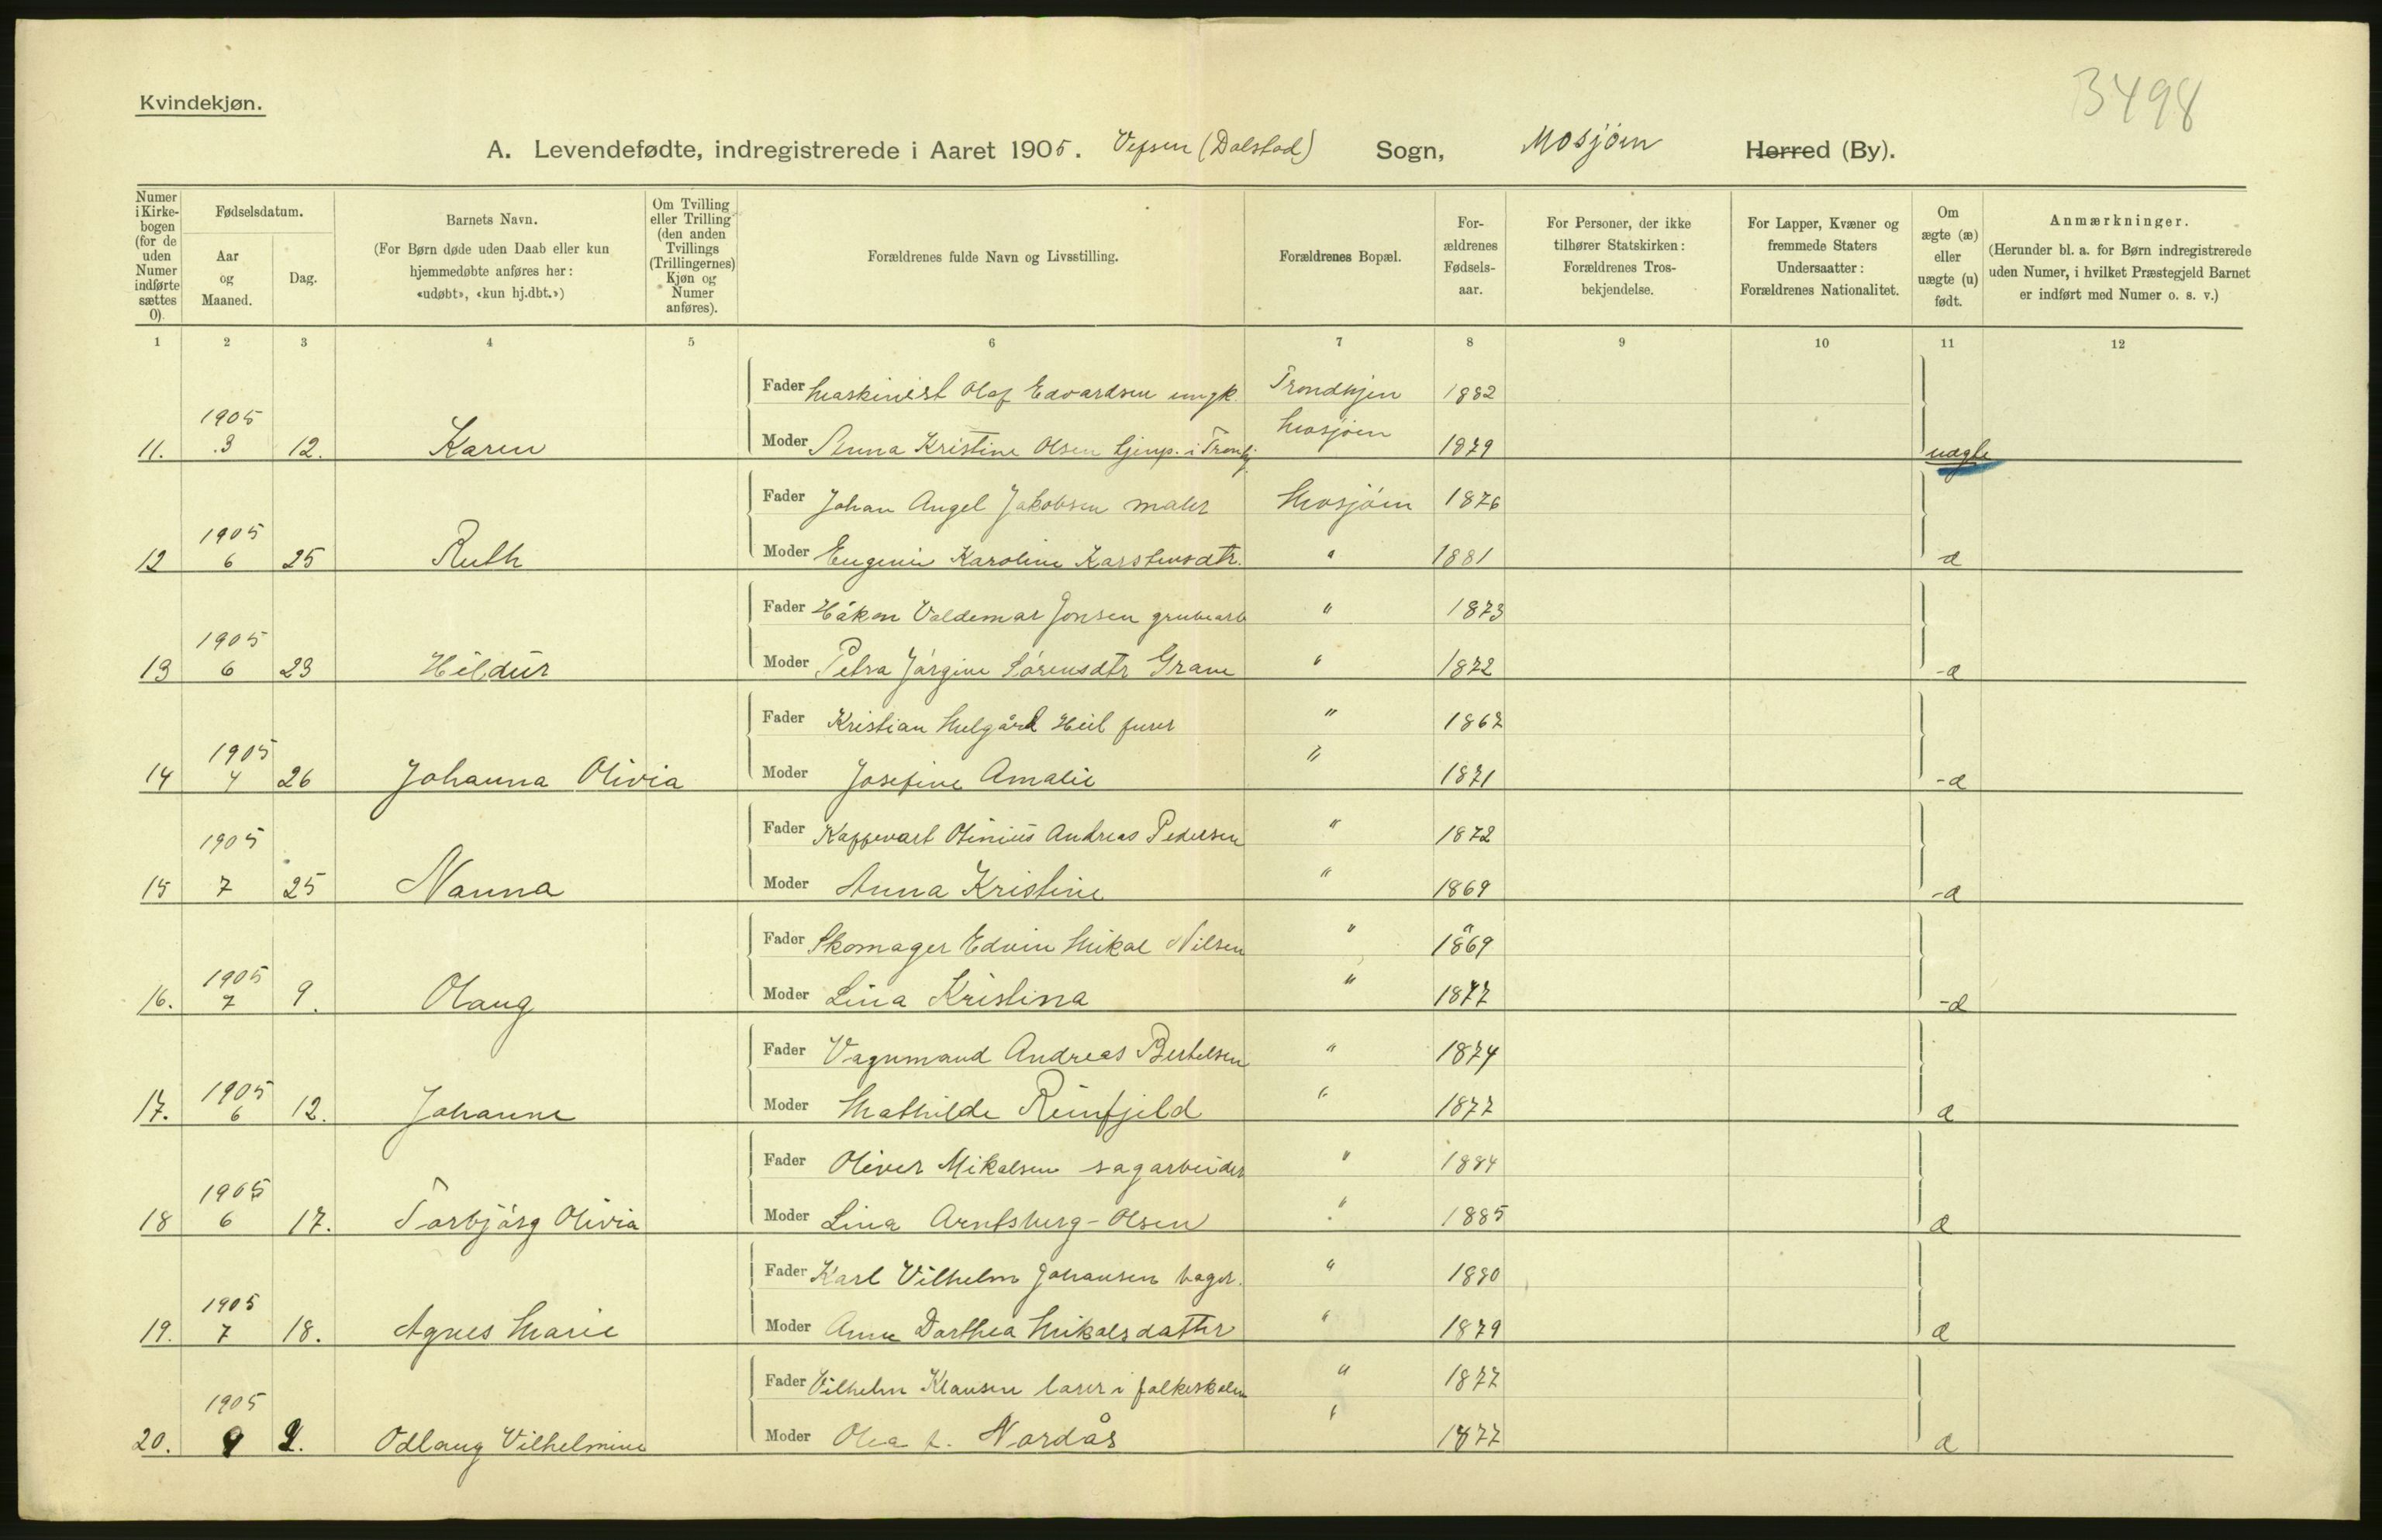 Kvindekjøn.
3498
A. Levendefødte, indregistrerede i Aaret 1905. Vefsen (Dolstad) Sogn, Mosjøen Herred (By).
Numer i Kirkebogen (for de uden Numer indførte sættes 0).
Fødselsdatum.
Aar og Maaned.
Dag.
Barnets Navn.
(For Børn døde uden Daab eller kun hjemmedøbte anføres her: «udøbt», «kun hj.dbt.»)
Om Tvilling eller Trilling (den anden Tvillings (Trillingernes) Kjøn og Numer anføres).
Forældrenes fulde Navn og Livsstilling.
Forældrenes Bopæl.
Forældrenes Fødselsaar.
For Personer, der ikke tilhører Statskirken: Forældrenes Trosbekjendelse.
For Lapper, Kvæner og fremmede Staters Undersaatter: Forældrenes Nationalitet.
Om ægte (æ) eller uægte (u) født.
Anmærkninger.
(Herunder bl. a. for Børn indregistrerede uden Numer, i hvilket Præstegjeld Barnet er indført med Numer o. s. v.)
1 2 3 4 5 6 7 8 9 10 11 12
Fader Maskinist Olaf Edvardsen ungk. Trondhjen 1882
11. 1905 3 12. Karen Moder Anna Kristine Olsen tjenp. i Trondhj. Mosjøen 1879 uægte
Fader Johan Angel Jakobsen maler Mosjøen 1876
12 1905 6 25 Ruth Moder Eugenie Karoline Karstensdtr. " 1881 æ
Fader Håkon Valdemar Jonsen grubearb " 1873
13 1905 6 23 Hildur Moder Petra Jørgine Sørensdtr Grane " 1872 -æ
Fader Kristian Melgård Heil furer " 1867
14 1905 4 26 Johanna Olivia Moder Josefine Amalie " 1871 -æ
Fader Otinius Andreas Pedersen " 1872
15 1905 7 25 Nanna Moder Anna Kristine " 1869 -æ
Fader Skomager Edvin Mikal Nilsen " 1869
16. 1905 7 9. Olaug Moder Lina Kristina " 1877 -æ
Fader Vognmand Andreas Bertelsen " 1874
17. 1905 6 12. Johanne Moder Mathilde Reinfjeld " 1877 æ
Fader Oliver Mikalsen sagarbeider " 1884
18 1905 6 17. Torbjørg Olivia Moder Lina Arntsberg-Olsen " 1885 æ
Fader Karl Vilhelm Johansen bager. " 1880
19. 1905 7 18. Agnes Marie Moder Anne Dorthea Mikalsdatter " 1879 æ
Fader Vilhelm Klausen lærer i folkeskolen " 1877
20. 1905 9 2. Odlaug Vilhelmine Moder Olea f. Nordås " 1877 æ